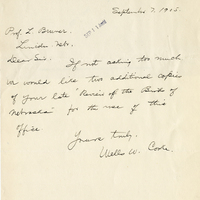 September 7, 1905
Prof. L. Bruner.
SEP 11 1905
Lincoln Nebr.
Dear Sir: If not asking too much
we would like two additional copies
of your late "Review of the Birds of
Nebraska" for the use of this
office.
Yours truly,
Wells W. Cooke.